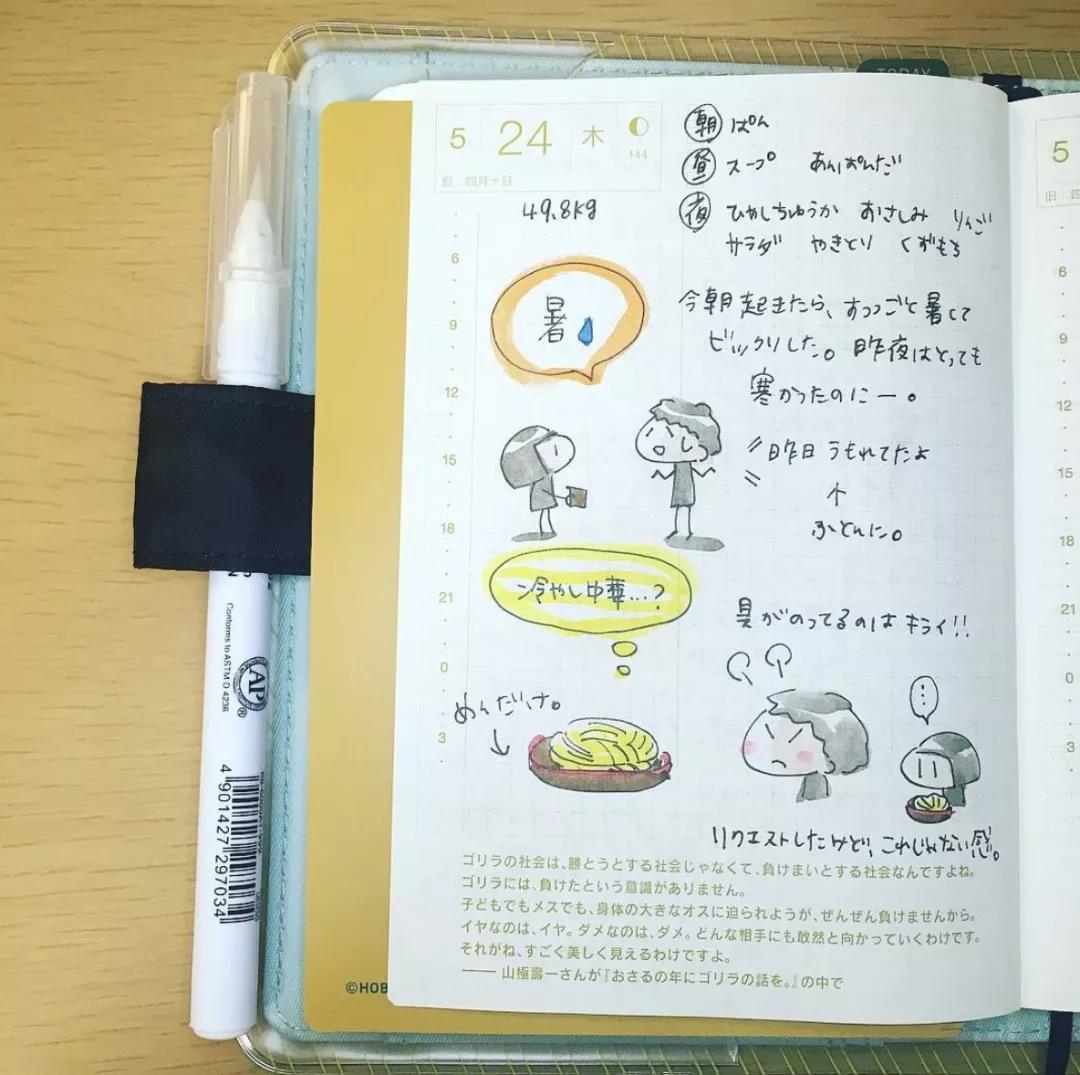 TODAY
5 24 木
144
旧：四月十日
朝 ぱん
昼 スープ あんぱんだ
夜 ひやしちゅうか おさしみ りんご
サラダ やきとり くずもち
49.8kg
6
9
12
15
18
21
0
3
暑
今朝起きたら、すっごと暑くて
ビックリした。昨夜はとっても
寒かったのにー。
昨日 うもれてたよ
ふとんに。
冷やし中華…?
具がのってるのは キライ!!
めんだけ。
…
リクエストしたけど、これじゃない感。
ゴリラの社会は、勝とうとする社会じゃなくて、負けまいとする社会なんですよね。
ゴリラには、負けたという意識がありません。
子どもでもメスでも、身体の大きなオスに迫られようが、ぜんぜん負けませんから。
イヤなのは、イヤ。ダメなのは、ダメ。どんな相手にも敢然と向かっていくわけです。
それがね、すごく美しく見えるわけですよ。
―― 山極壽一さんが『おさるの年にゴリラの話を。』の中で
©HOB
Conforms to ASTM D 4236
AP
®
4 901427 297034
5
旧：四
6
9
12
15
18
21
0
3